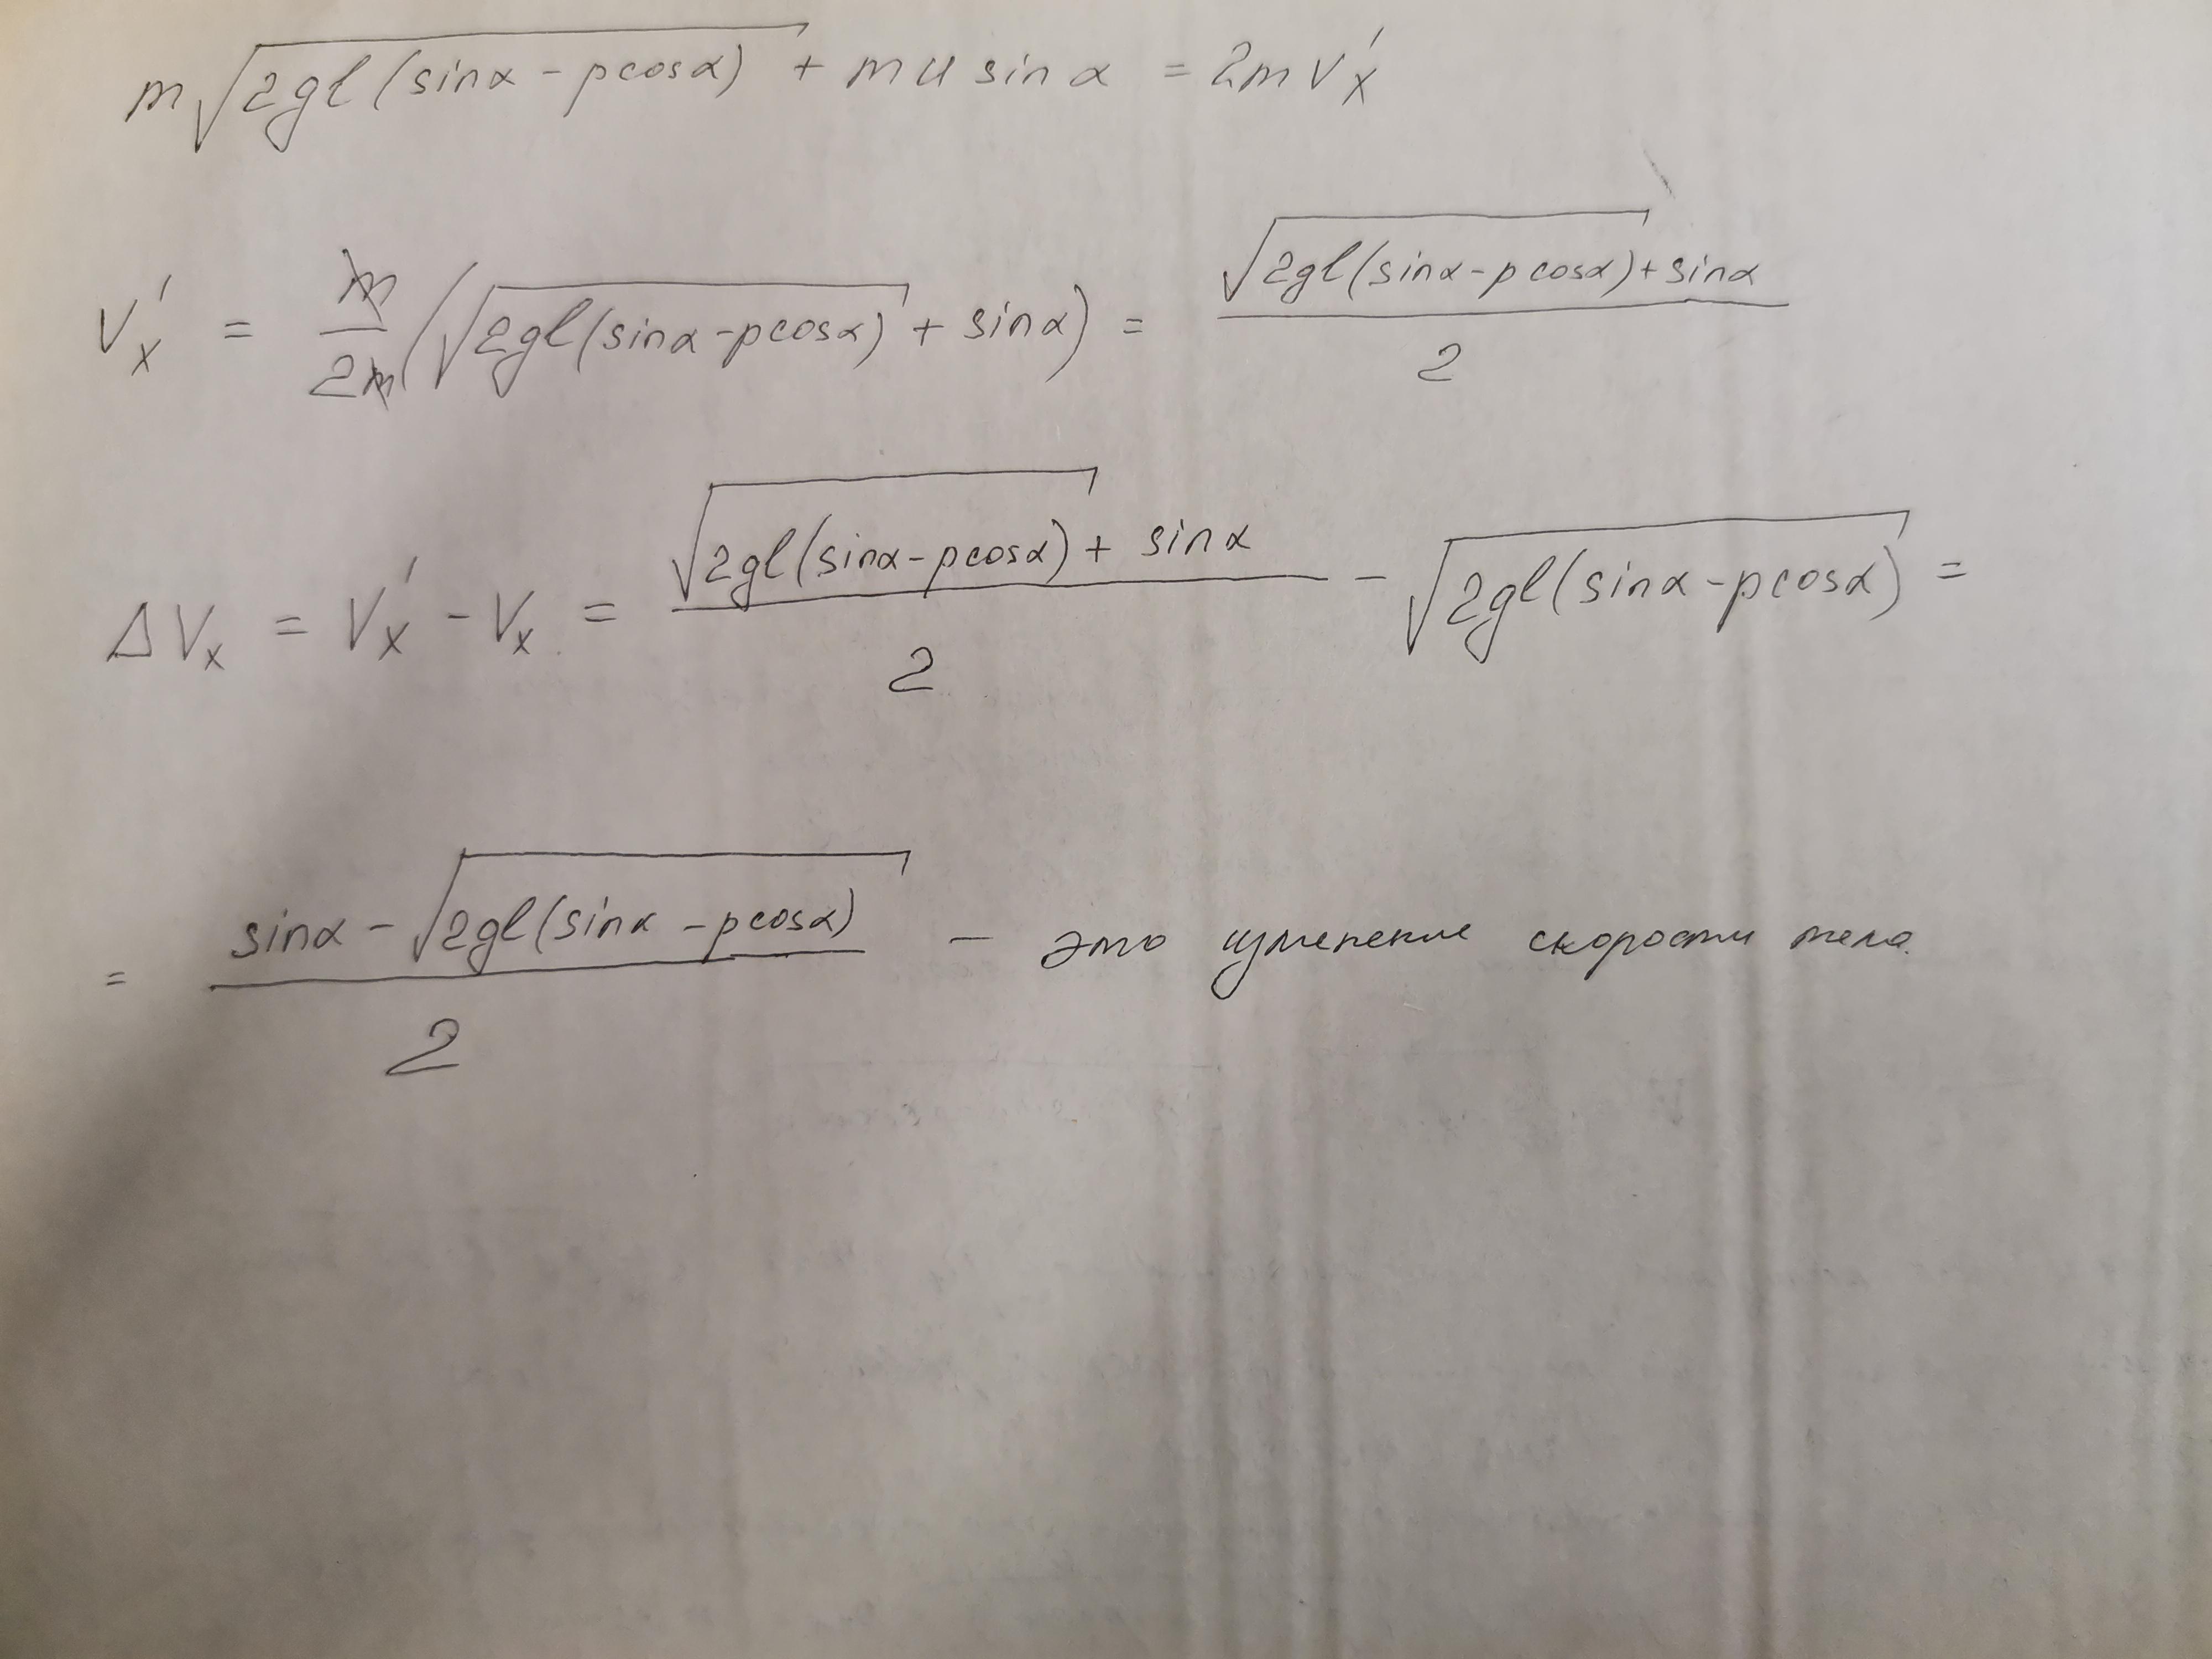 m√(2gl(sinα - pcosα)) + mu sinα = 2mVx'
Vx' = m/2m (√(2gl(sinα - pcosα)) + sinα) = (√(2gl(sinα - pcosα)) + sinα)/2
ΔVx = Vx' - Vx = (√(2gl(sinα - pcosα)) + sinα)/2 - √(2gl(sinα - pcosα)) =
= (sinα - √(2gl(sinα - pcosα)))/2 - это изменение скорости тела.